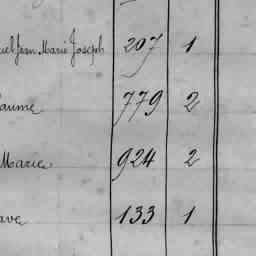 iel Jean Marie Joseph 207 1
aume 779 2
Marie 924 2
ave 133 1